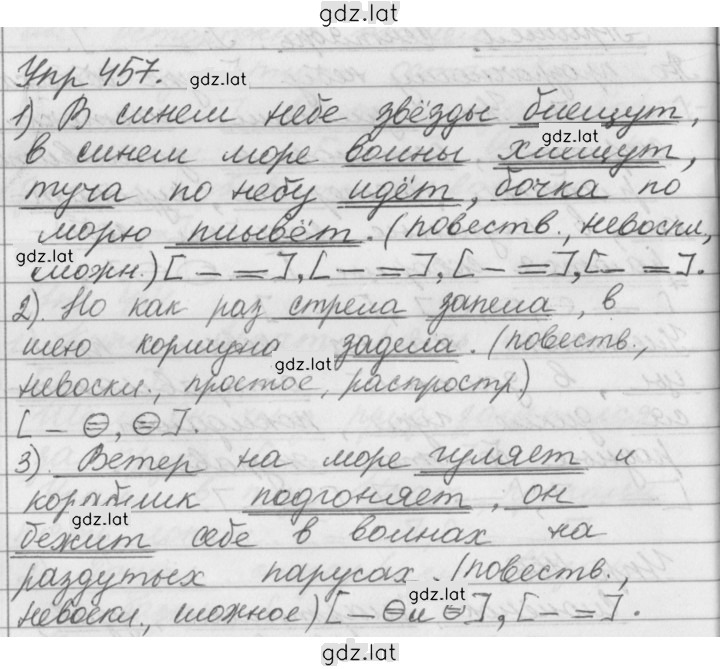 gdz.lat
Упр 457.
gdz.lat
1) В синем небе звёзды блещут,
gdz.lat
в синем море волны хлещут,
туча по небу идёт, бочка по
морю плывёт. (повеств., невоскл.,
gdz.lat
сложн.) [ – = ], [ – = ], [ – = ], [ – = ].
2). Но как раз стрела запела, в
шею коршуна задела. (повеств.,
gdz.lat
невоскл., простое, распростр.)
[ – ⊜, ⊜ ].
3). Ветер на море гуляет и
кораблик подгоняет, он
gdz.lat
бежит себе в волнах на
раздутых парусах. (повеств.,
gdz.lat
невоскл., сложное) [ – ⊜ и ⊜ ], [ – = ].
gdz.lat